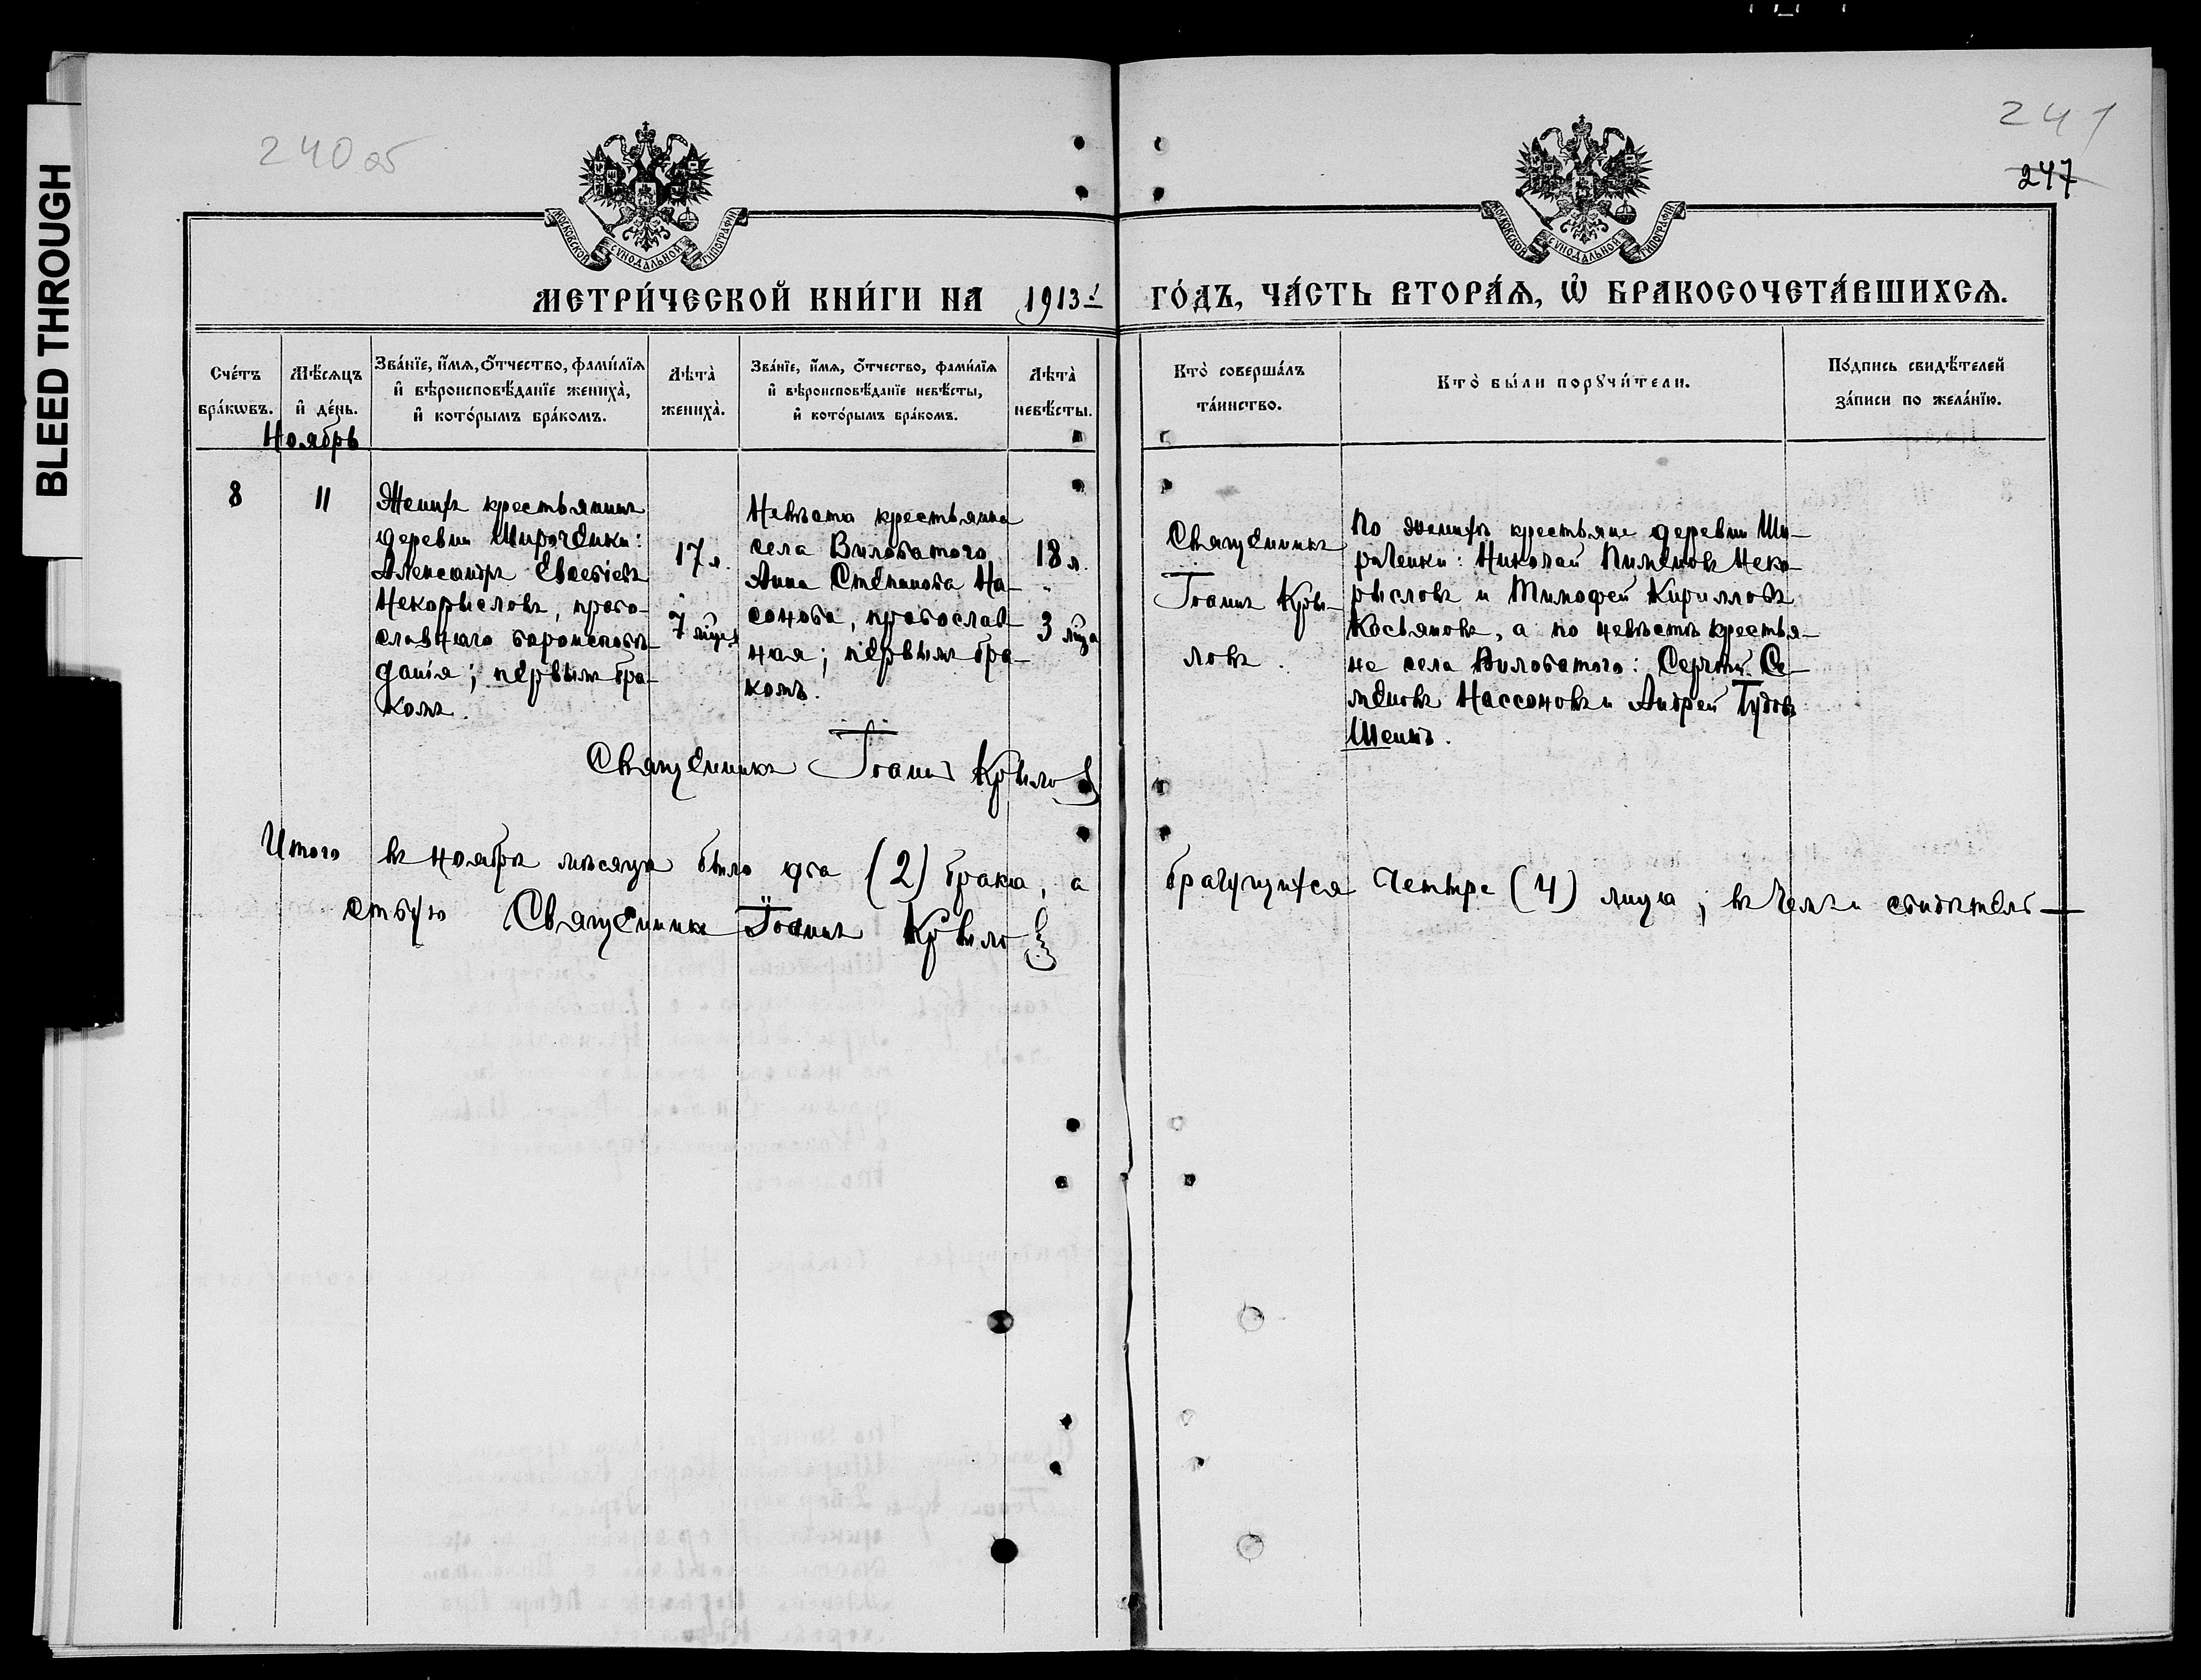 BLEED THROUGH
240 об
241
247
МОСКОВСКОЙ СѴНОДАЛЬНОЙ ТИПОГРАФІИ
МОСКОВСКОЙ СѴНОДАЛЬНОЙ ТИПОГРАФІИ
МЕТРИ́ЧЕСКОЙ КНИ́ГИ НА 1913-й ГО́ДЪ, ЧА́СТЬ ВТОРА́Ѧ, Ѡ҆ БРАКОСОЧЕТА́ВШИХСѦ.
Сче́тъ
бра́кѡвъ.
Мѣ́сѧцъ
и҆ де́нь.
Ноябрь
Зва́нїе, и҆́мѧ, ѻ҆́тчество, фамилїѧ
и҆ вѣроисповѣ́данїе жениха̀,
и҆ кото́рымъ бра́комъ.
Лѣта̀
жениха̀.
Зва́нїе, и҆́мѧ, ѻ҆́тчество, фами́лїѧ
и҆ вѣроисповѣ́данїе невѣ́сты,
и҆ кото́рымъ бра́комъ.
Лѣта̀
невѣ́сты.
Кто̀ соверша́лъ
та́инство.
Кто̀ бы́ли порꙋчи́тели.
По́дпись свидѣ́телей
за́писи по жела́нїю.
8
11
Женихъ крестьянинъ
деревни Широченки:
Александръ Евсевіевъ
Некорысловъ, право-
славнаго вероисповѣ-
данія; первымъ бра-
комъ.
17 л.
7 мѣц.
Невѣста крестьянка
села Виловатого
Анна Степанова На-
сонова, православ-
ная; первымъ бра-
комъ.
18 л.
3 мѣца
Священникъ
Іоаннъ Кры-
ловъ.
По женихѣ крестьяне деревни Ши-
роченки: Николай Пименовъ Неко-
рысловъ и Тимофей Кирилловъ
Косьяновъ, а по невѣстѣ крестья-
не села Виловатого: Сергѣй Се-
меновъ Нассоновъ и Андрей Тудовъ
Шеинъ.
Священникъ Іоаннъ Крылов
Итого въ ноябрѣ мѣсяцѣ было два (2) брака, а брачущихся четыре (4) лица; въ чемъ и свидѣтель-
ствую Священникъ Іоаннъ Крылов